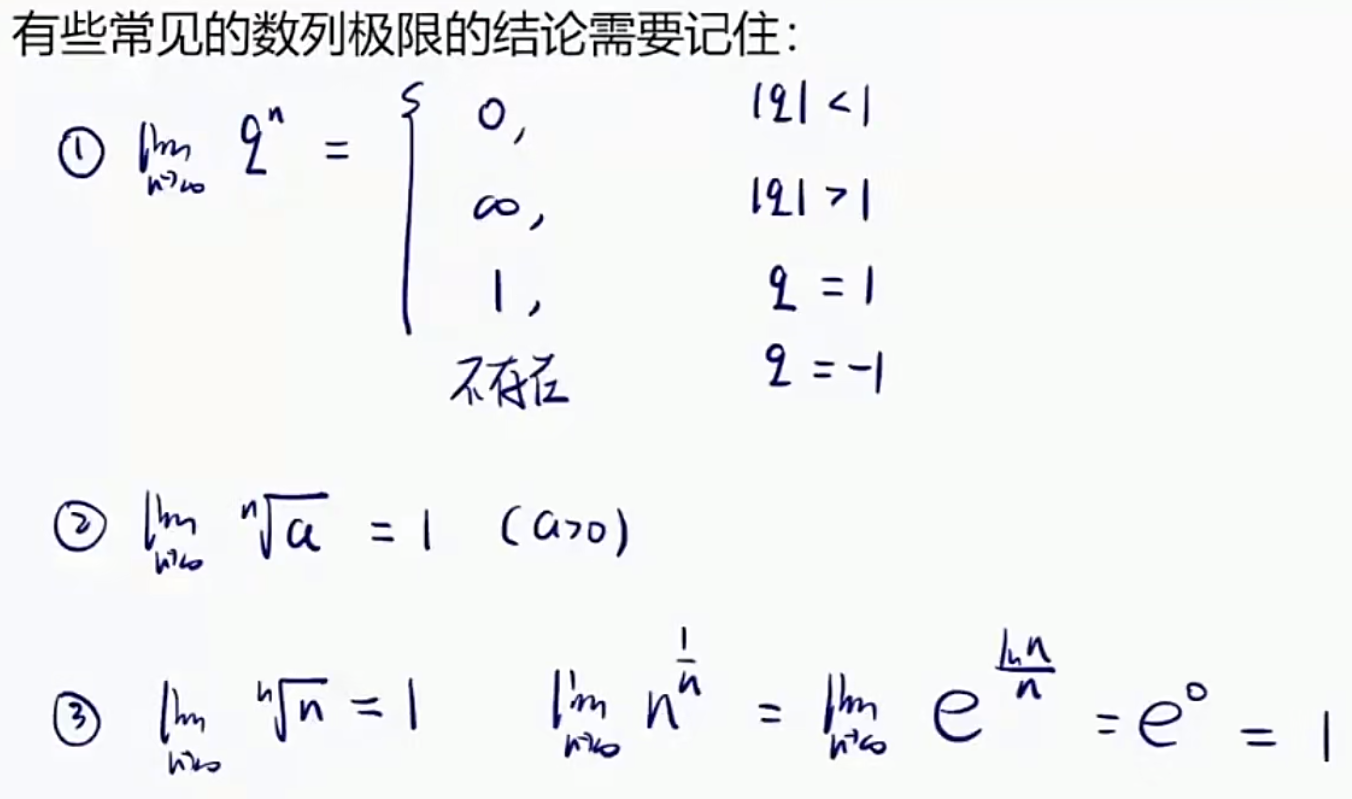 有些常见的数列极限的结论需要记住：
① lim_{n→∞} q^n = { 0, |q| < 1
∞, |q| > 1
1, q = 1
不存在 q = -1
② lim_{n→∞} ⁿ√a = 1 (a>0)
③ lim_{n→∞} ⁿ√n = 1 lim_{n→∞} n^{1/n} = lim_{n→∞} e^{ln n/n} = e^0 = 1